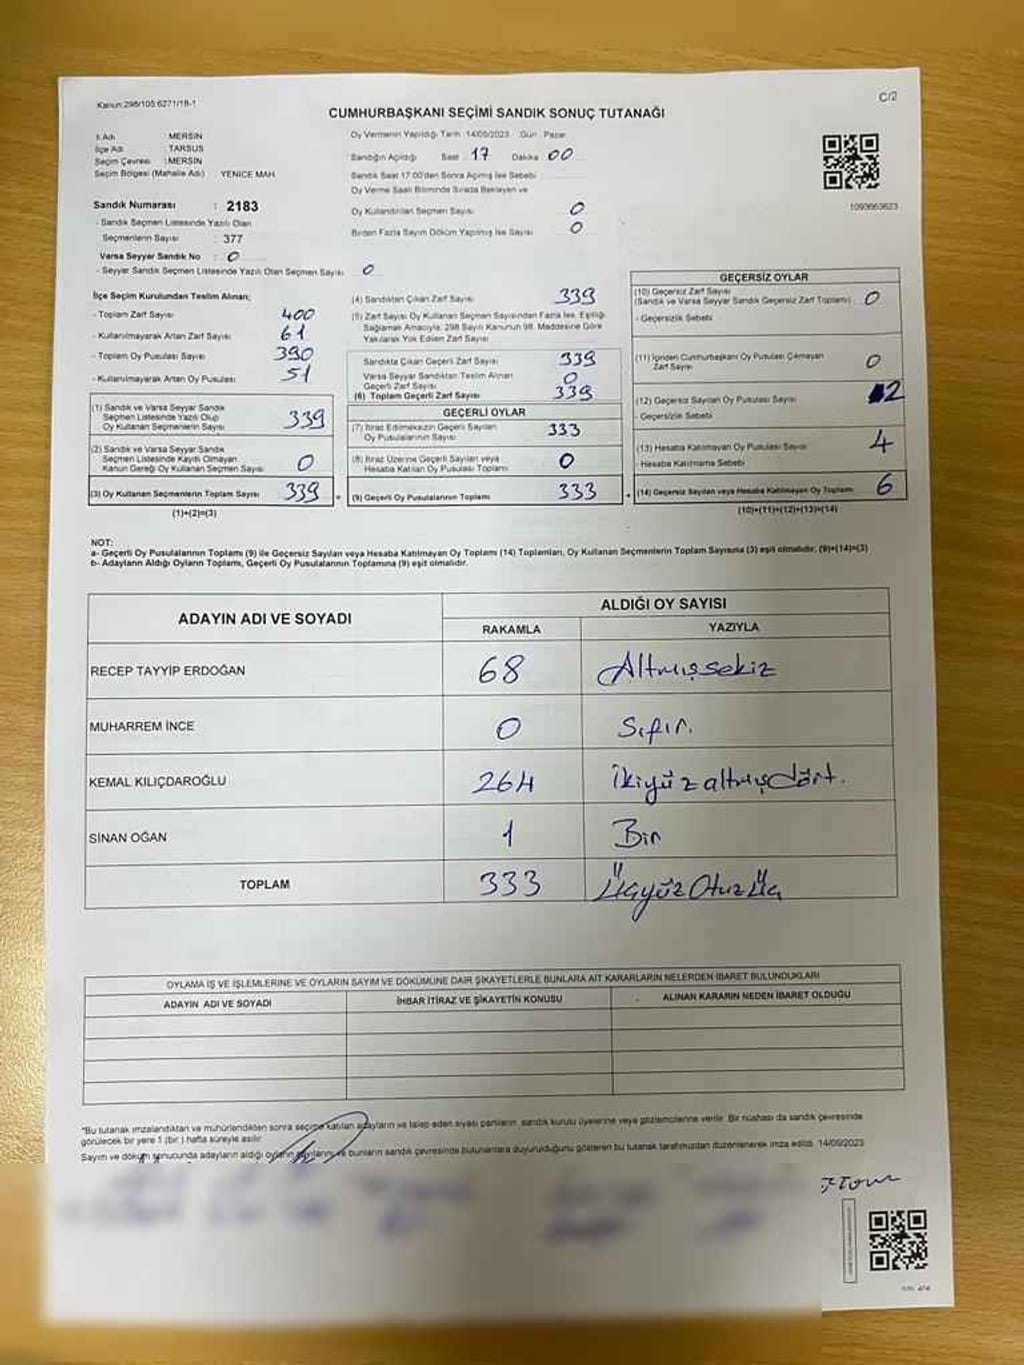 Kanun:298/105 6271/18-1
C/2
CUMHURBAŞKANI SEÇİMİ SANDIK SONUÇ TUTANAĞI
İl Adı MERSİN
İlçe Adı TARSUS
Seçim Çevresi :MERSİN
Seçim Bölgesi (Mahalle Adı) : YENİCE MAH.
Sandık Numarası : 2183
- Sandık Seçmen Listesinde Yazılı Olan
Seçmenlerin Sayısı : 377
Varsa Seyyar Sandık No : 0
- Seyyar Sandık Seçmen Listesinde Yazılı Olan Seçmen Sayısı 0
Oy Vermenin Yapıldığı Tarih :14/05/2023 Gün : Pazar
Sandığın Açıldığı Saat 17 Dakika 00
Sandık Saat 17:00'den Sonra Açılmış İse Sebebi
Oy Verme Saati Bitiminde Sırada Bekleyen ve
Oy Kullandırılan Seçmen Sayısı 0
Birden Fazla Sayım Döküm Yapılmış İse Sayısı 0
1093663623
İlçe Seçim Kurulundan Teslim Alınan;
- Toplam Zarf Sayısı 400
- Kullanılmayarak Artan Zarf Sayısı 61
- Toplam Oy Pusulası Sayısı 390
- Kullanılmayarak Artan Oy Pusulası 51
(1) Sandık ve Varsa Seyyar Sandık
Seçmen Listesinde Yazılı Olup
Oy Kullanan Seçmenlerin Sayısı 339
(2) Sandık ve Varsa Seyyar Sandık
Seçmen Listesinde Kayıtlı Olmayan
Kanun Gereği Oy Kullanan Seçmen Sayısı 0
(3) Oy Kullanan Seçmenlerin Toplam Sayısı 339
(1)+(2)=(3)
(4) Sandıktan Çıkan Zarf Sayısı 339
(5) Zarf Sayısı Oy Kullanan Seçmen Sayısından Fazla İse, Eşitliği
Sağlamak Amacıyla, 298 Sayılı Kanunun 98. Maddesine Göre
Yakılarak Yok Edilen Zarf Sayısı
Sandıkta Çıkan Geçerli Zarf Sayısı 339
Varsa Seyyar Sandıktan Teslim Alınan
Geçerli Zarf Sayısı 0
(6) Toplam Geçerli Zarf Sayısı 339
GEÇERLİ OYLAR
(7) İtiraz Edilmeksizin Geçerli Sayılan
Oy Pusulalarının Sayısı 333
(8) İtiraz Üzerine Geçerli Sayılan veya
Hesaba Katılan Oy Pusulası Toplamı 0
= (9) Geçerli Oy Pusulalarının Toplamı 333
GEÇERSİZ OYLAR
(10) Geçersiz Zarf Sayısı
(Sandık ve Varsa Seyyar Sandık Geçersiz Zarf Toplamı) 0
- Geçersizlik Sebebi
(11) İçinden Cumhurbaşkanı Oy Pusulası Çıkmayan
Zarf Sayısı 0
(12) Geçersiz Sayılan Oy Pusulası Sayısı 2
- Geçersizlik Sebebi
(13) Hesaba Katılmayan Oy Pusulası Sayısı 4
- Hesaba Katılmama Sebebi
+ (14) Geçersiz Sayılan veya Hesaba Katılmayan Oy Toplamı 6
(10)+(11)+(12)+(13)=(14)
NOT:
a- Geçerli Oy Pusulalarının Toplamı (9) ile Geçersiz Sayılan veya Hesaba Katılmayan Oy Toplamı (14) Toplamları, Oy Kullanan Seçmenlerin Toplam Sayısına (3) eşit olmalıdır. (9)+(14)=(3)
b- Adayların Aldığı Oyların Toplamı, Geçerli Oy Pusulalarının Toplamına (9) eşit olmalıdır.
ADAYIN ADI VE SOYADI ALDIĞI OY SAYISI
RAKAMLA YAZIYLA
RECEP TAYYİP ERDOĞAN 68 Altmışsekiz
MUHARREM İNCE 0 Sıfır.
KEMAL KILIÇDAROĞLU 264 ikiyüzaltmışdört.
SİNAN OĞAN 1 Bir
TOPLAM 333 ÜçyüzOtuzÜç
OYLAMA İŞ VE İŞLEMLERİNE VE OYLARIN SAYIM VE DÖKÜMÜNE DAİR ŞİKAYETLERLE BUNLARA AİT KARARLARIN NELERDEN İBARET BULUNDUKLARI
ADAYIN ADI VE SOYADI İHBAR İTİRAZ VE ŞİKAYETİN KONUSU ALINAN KARARIN NEDEN İBARET OLDUĞU
*Bu tutanak imzalandıktan ve mühürlendikten sonra seçime katılan adayların ve talep eden siyasi partilerin, sandık kurulu üyelerine veya gözlemcilerine verilir. Bir nüshası da sandık çevresinde
görülecek bir yere 1 (bir) hafta süreyle asılır.
Sayım ve döküm sonucunda adayların aldığı oyların sayılarını ve bunların sandık çevresinde bulunanlara duyurulduğunu gösteren bu tutanak tarafımızdan düzenlenerek imza edildi. 14/05/2023